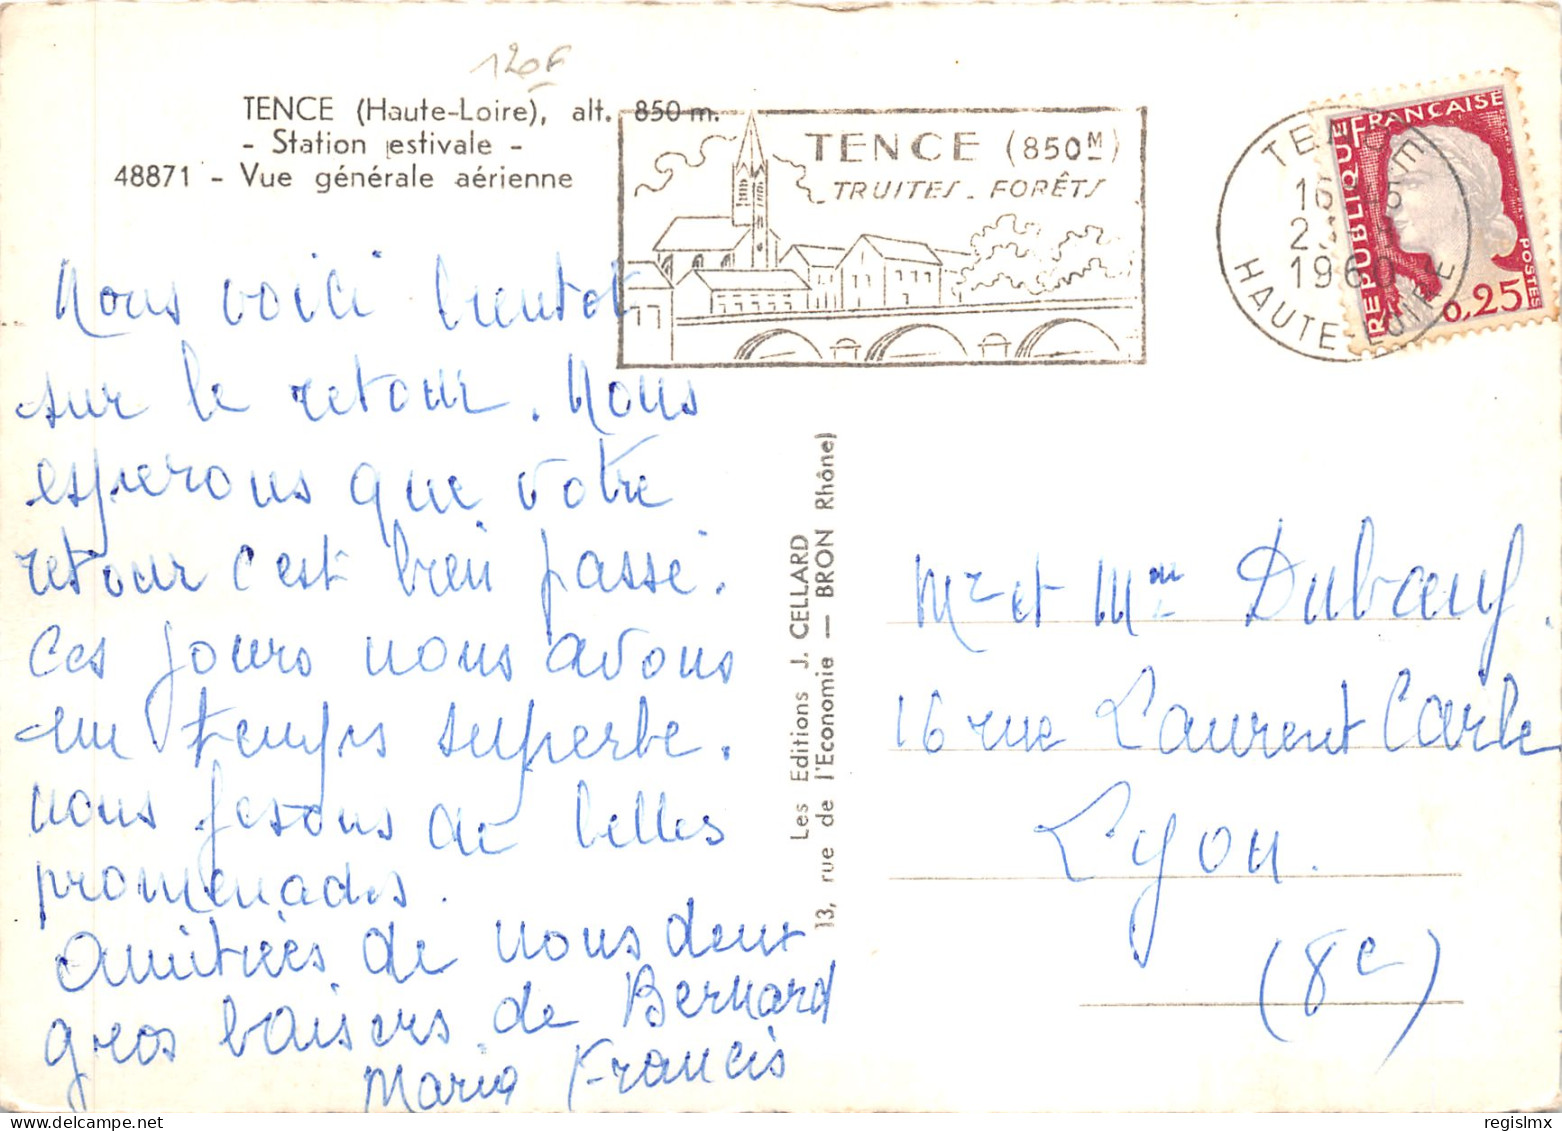 120F
TENCE (Haute-Loire), alt. 850 m.
- Station estivale -
48871 - Vue générale aérienne
TENCE (850M)
TRUITES - FORÊTS
TENCE
16
1960
HAUTE-LOIRE
RÉPUBLIQUE FRANÇAISE
POSTES
0,25
Nous voici bientot
sur le retour. Nous
esperons que votre
retour c'est bien passé.
Ces jours nous avons
un temps superbe.
nous fesons de belles
promenades.
Amitiées de nous deux
gros baisers de Bernard
Maria Francis
Les Editions J. CELLARD
13, rue de l'Economie — BRON Rhône)
Mr et Mme Dubœuf.
16 rue Laurent Carle
Lyon.
(8e)
regislmx